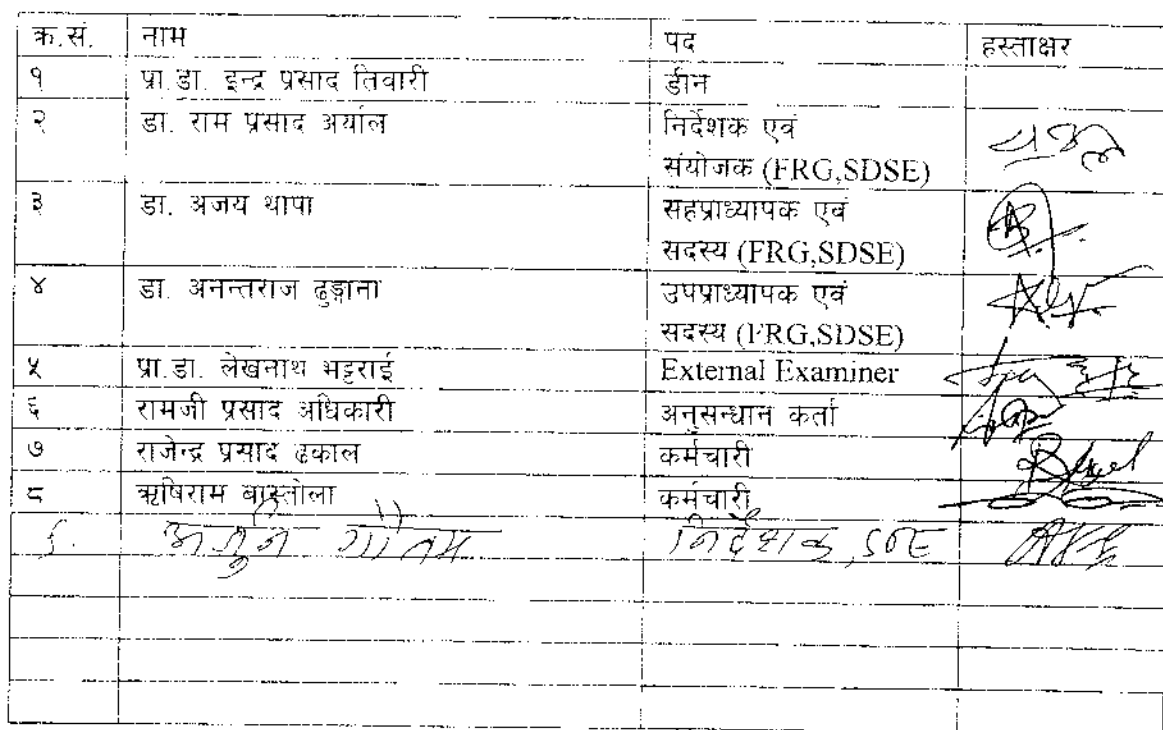 क्र.सं. नाम पद हस्ताक्षर
१ प्रा.डा. इन्द्र प्रसाद तिवारी डीन
२ डा. राम प्रसाद अर्याल निर्देशक एवं
संयोजक (FRG,SDSE)
३ डा. अजय थापा सहप्राध्यापक एवं
सदस्य (FRG,SDSE)
४ डा. अनन्तराज ढुङ्गाना उपप्राध्यापक एवं
सदस्य (FRG,SDSE)
५ प्रा.डा. लेखनाथ भट्टराई External Examiner
६ रामजी प्रसाद अधिकारी अनुसन्धान कर्ता
७ राजेन्द्र प्रसाद ढकाल कर्मचारी
८ ऋषिराम बास्तोला कर्मचारी
९. अर्जुन गौतम निर्देशक, SOE